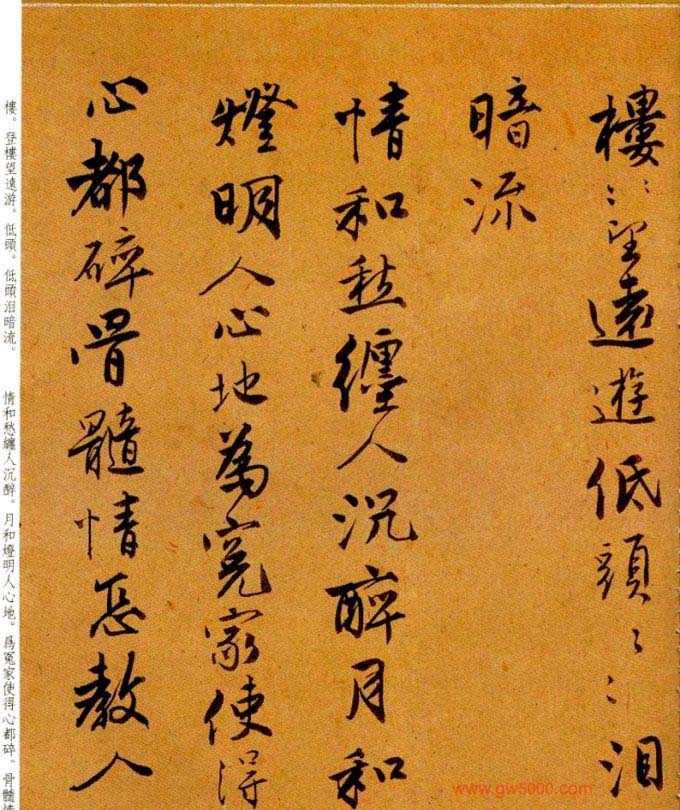 樓〻〻望遠遊低頭〻〻泪
暗流
情和愁纏人沉醉月和
燈明人心地為冤家使得
心都碎骨髓情恁教人
樓。登樓望遠游。低頭。低頭泪暗流。 情和愁纏人沉醉。月和燈明人心地。爲冤家使得心都碎。骨髓情
www.gw5000.com